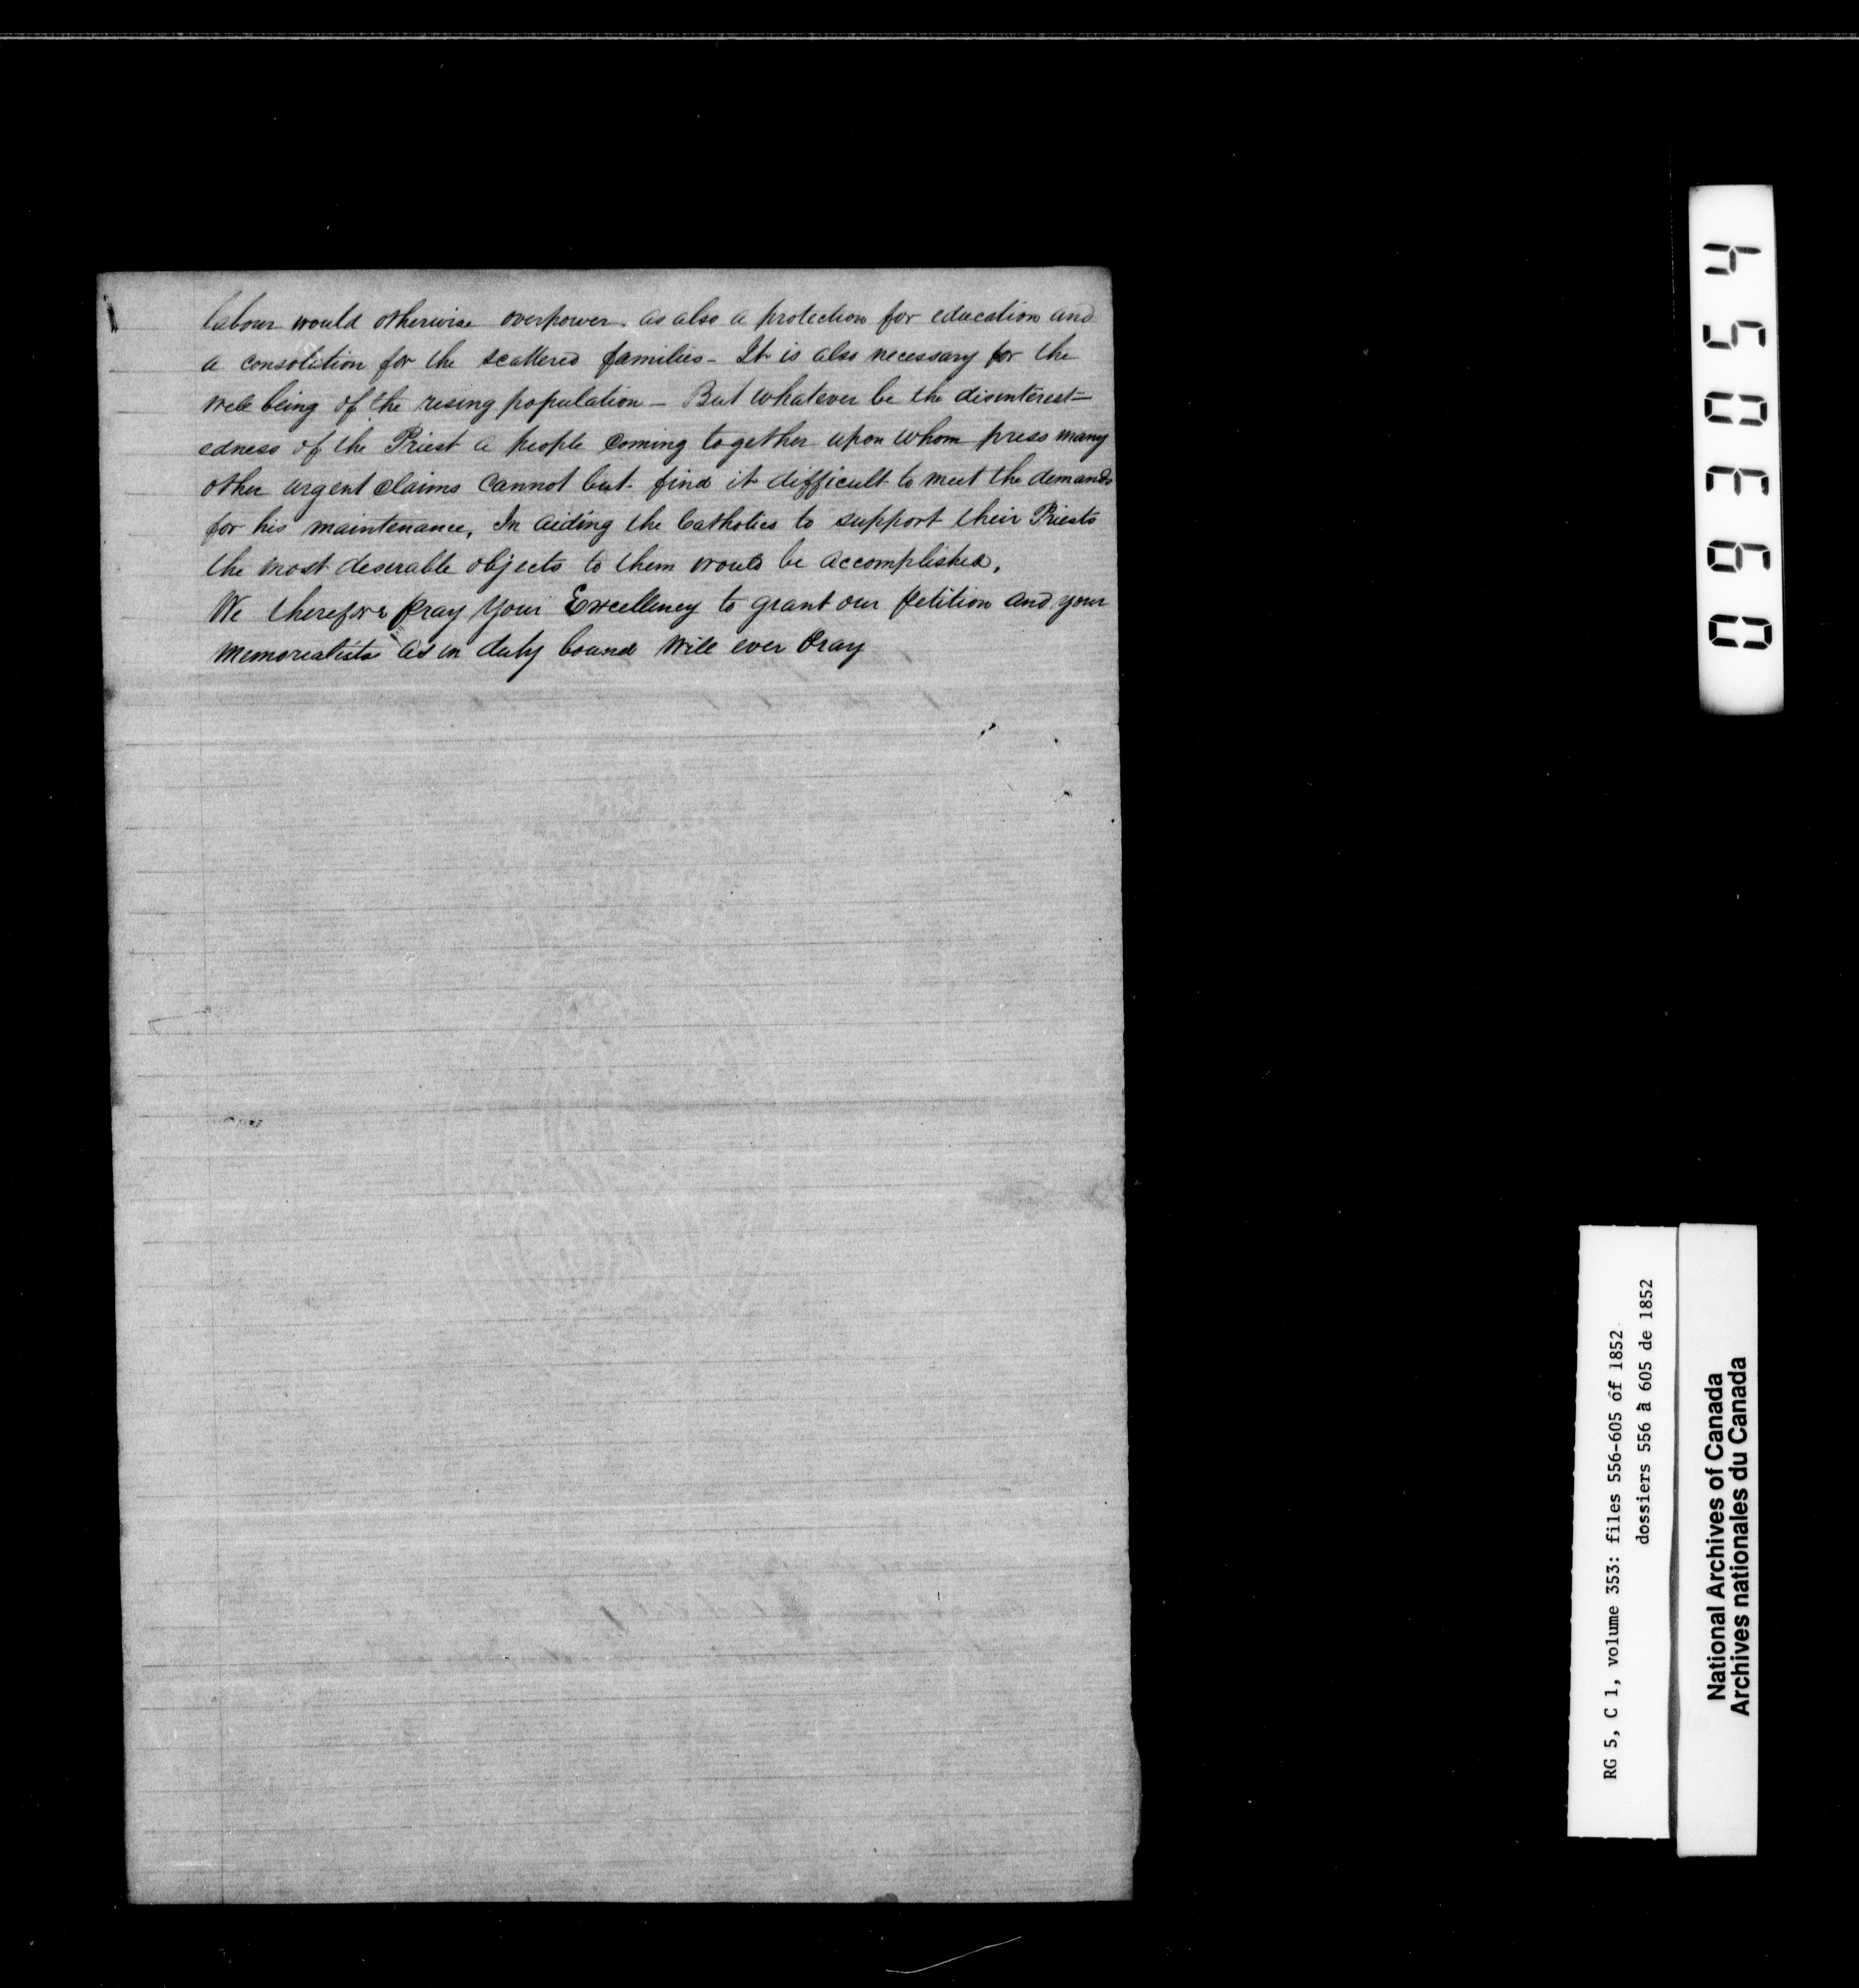 labour would otherwise overpower. as also a protection for education and
a consolation for the scattered families - It is also necessary for the
well being of the rising population - But whatever be the disinterest=
edness of the Priest a people coming together upon whom press many
other urgent claims cannot but find it difficult to meet the demands
for his maintenance, In aiding the Catholics to support their Priests
the most deserable objects to them would be accomplished,
We therefore pray your Excellency to grant our petition and your
memorialists as in duty bound will ever pray
093054
RG 5, C 1, volume 353: files 556-605 of 1852
dossiers 556 à 605 de 1852
National Archives of Canada
Archives nationales du Canada